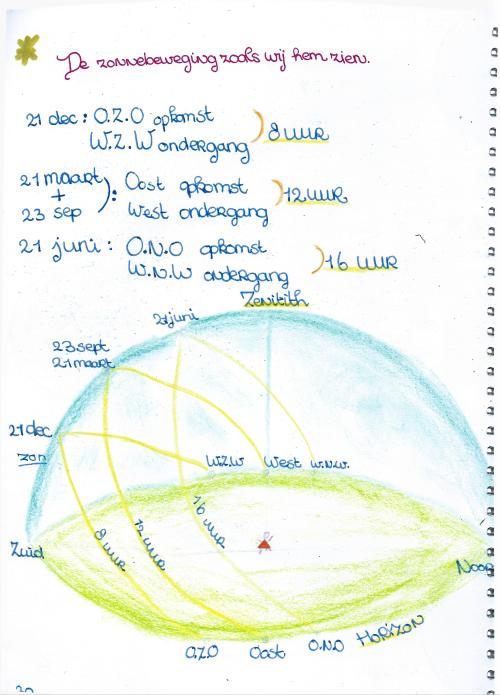 De zonnebeweging zoals wij hem zien.
21 dec: O.Z.O opkomst
W.Z.W ondergang
8 UUR
21 maart
+
23 sep
: Oost opkomst
West ondergang
12 UUR
21 juni: O.N.O opkomst
W.N.W ondergang
16 UUR
Zenitith
21 juni
23 sept
21 maart
21 dec
zon
W.Z.W West W.N.W.
8 UUR
12 UUR
16 UUR
Zuid
Noor
O.Z.O Oost O.N.O Horizon
20